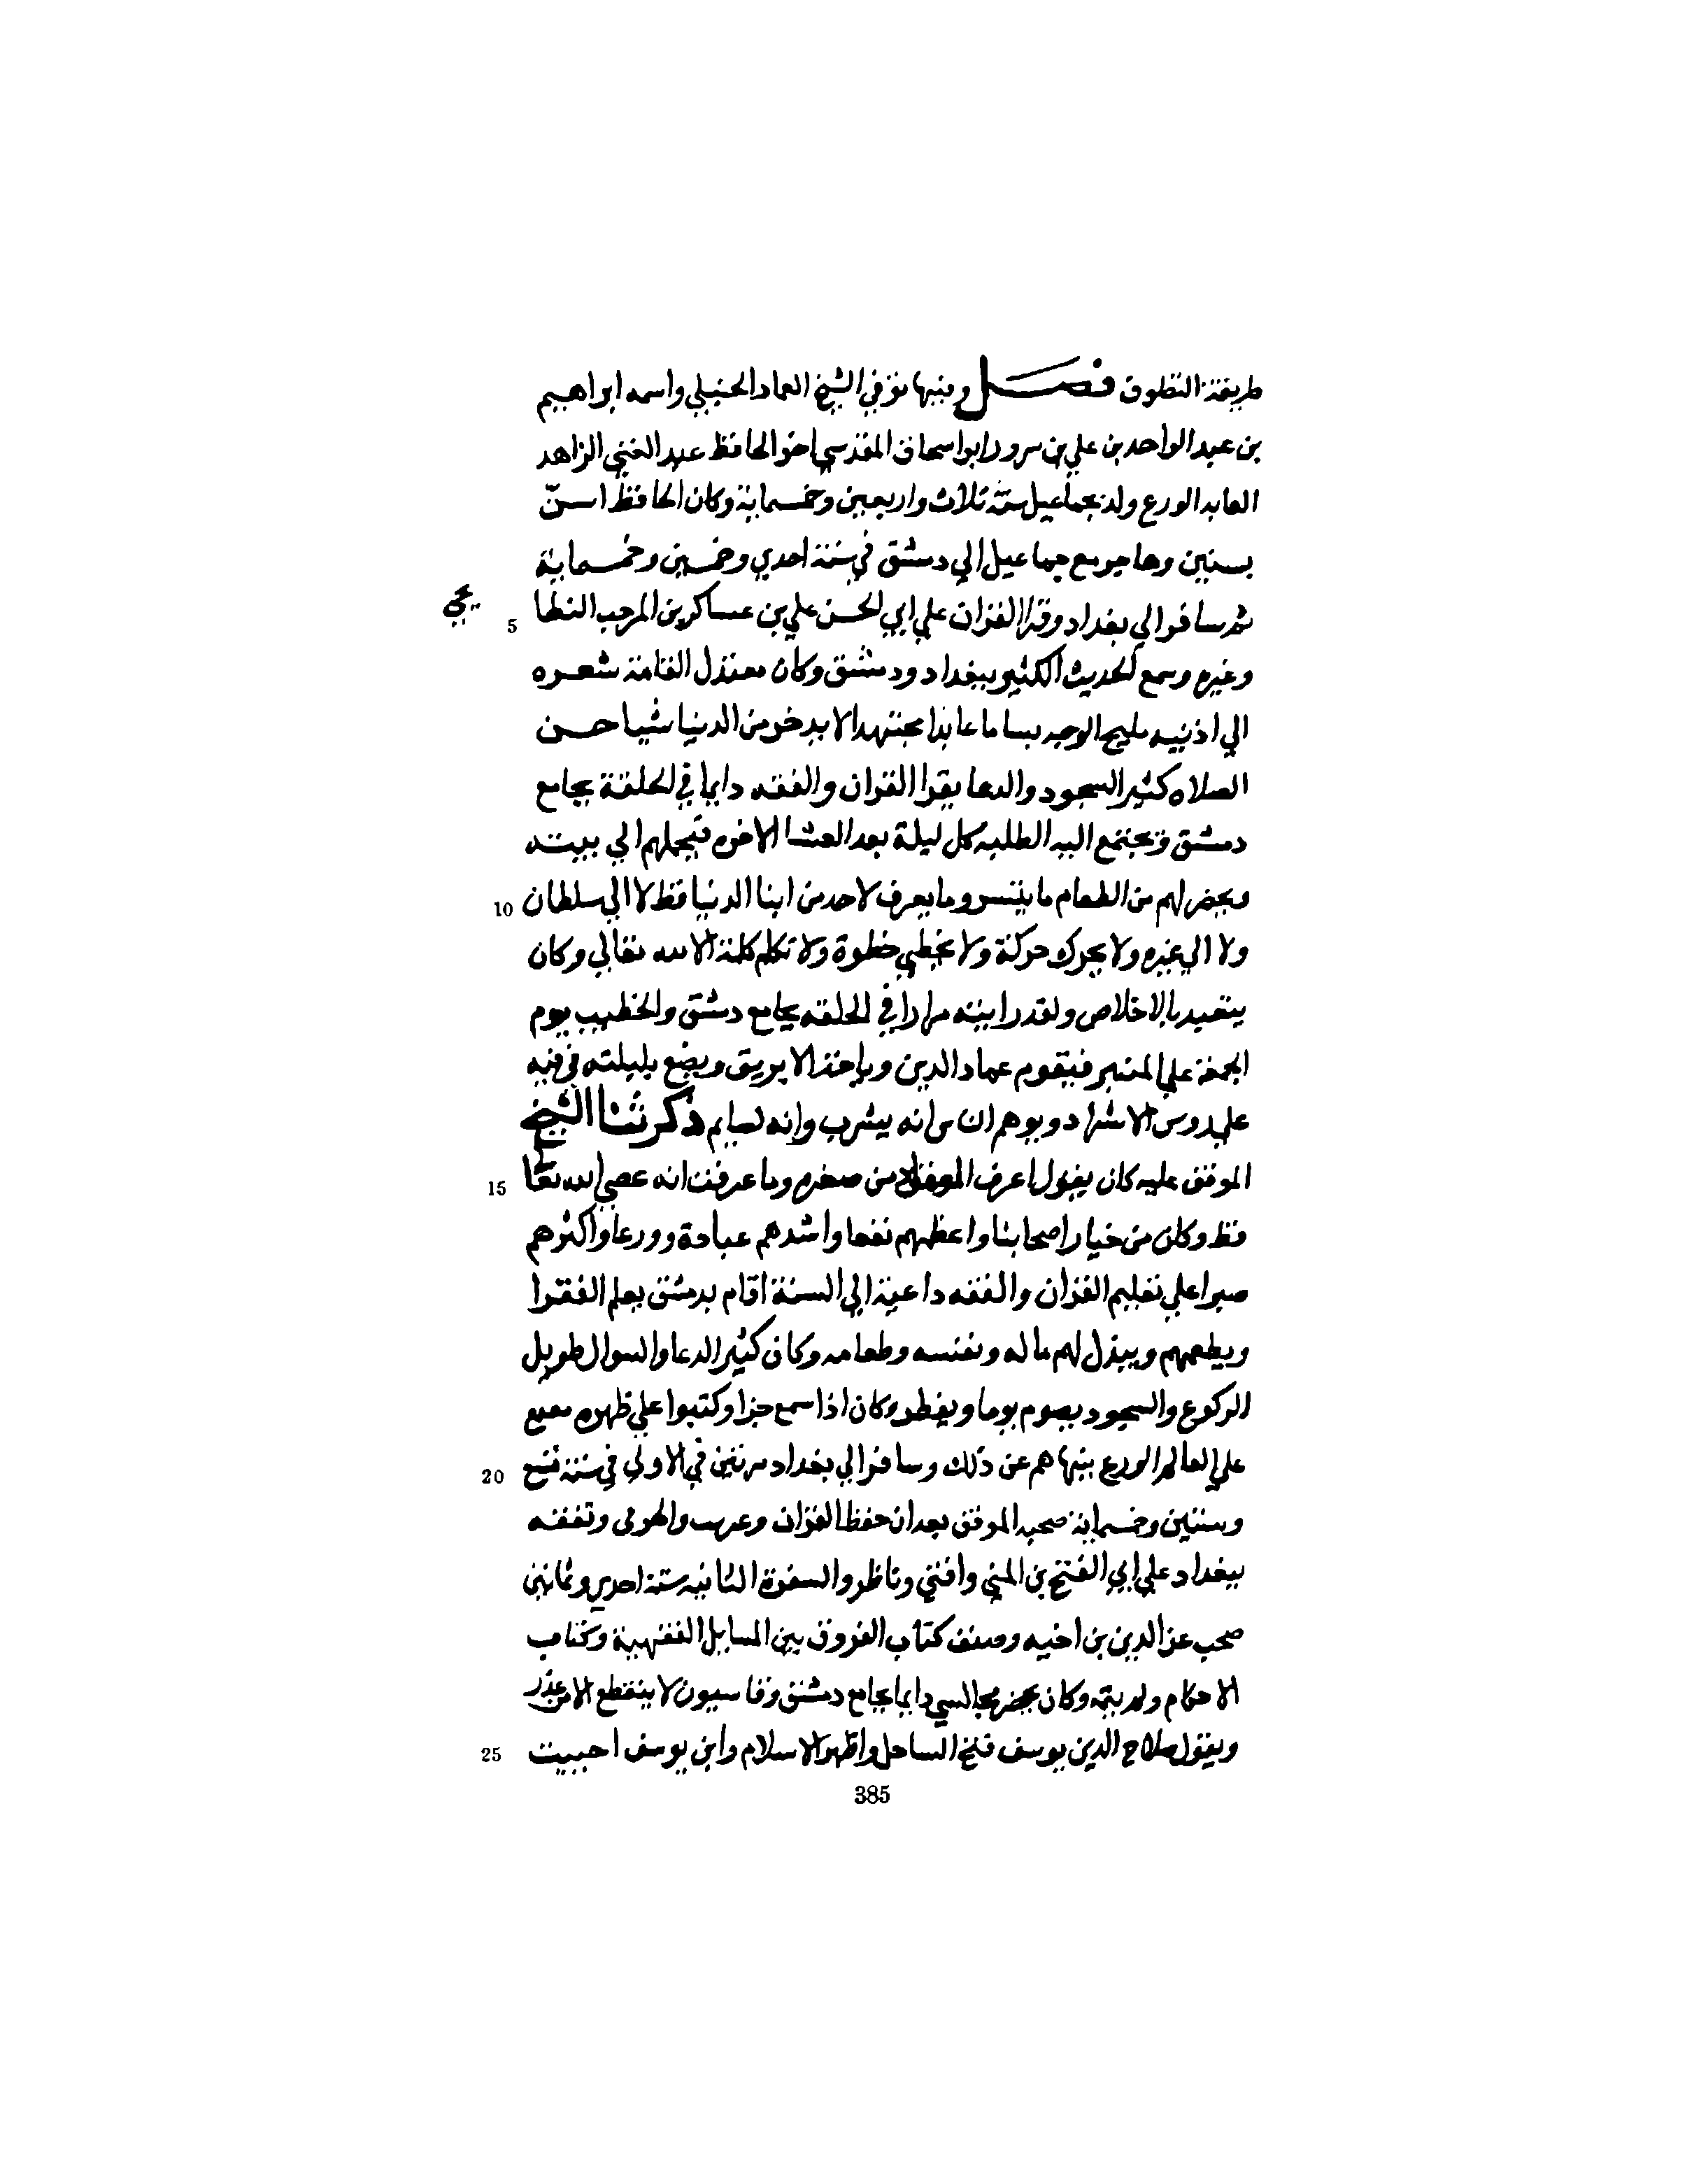 طريقة التطوق فصل وفيها توفي الشيخ العماد الحنبلي واسمه ابراهيم
بن عبد الواحد بن علي بن سرور ابو اسحاق المقدسي اخو الحافظ عبد الغني الزاهد
العابد الورع ولد بجماعيل سنة ثلاث واربعين وخمسماية وكان الحافظ اسنّ
بسنتين وهاجر مع جماعيل الي دمشق في سنة احدي وخمسين وخمسماية
ثم سافر الي بغداد وقرا القران علي ابي الحسن علي بن عساكر بن المرحب البطا يحي 5
وغيره وسمع الحديث الكثير ببغداد ودمشق وكان معتدل القامة شعره
الي اذنيه مليح الوجه بساما عابدا مجتهدا لا يدخر من الدنيا شيا حسن
الصلاه كثير السجود والدعا يقرا القران والفقه دايما في الحلقة بجامع
دمشق وتجتمع اليه الطلبه كل ليلة بعد العشا الاخره فيحملهم الي بيته
ويحضر لهم من الطعام ما يتيسر وما يعرف لاحد من ابنا الدنيا قط لا الي سلطان 10
ولا الي غيره ولا يحرك حركة ولا يخطي خطوة ولا تكلم كلمة الا لله تعالي وكان
يتعبد بالاخلاص ولقد رايته مرارا في الحلقه بجامع دمشق والخطيب يوم
الجمعة علي المنبر فيقوم عماد الدين وياخذ الابريق ويضع بليلته في فيه
علي روس الاشهاد ويوهم ان س انه يشرب وانه لصايم ذكر ثنا الشيخ
الموفق عليه كان يقول اعرف من صغره وما عرفت انه عصي الله تعا 15
قط وكان من خيار اصحابنا واعظمهم نفعا واشدهم عبادة وورعا واكثرهم
صبرا علي تعليم القران والفقه داعية الي السنة اقام بدمشق يعلم الفقرا
ويطعمهم ويبذل لهم ماله ونفسه وطعامه وكان كثير الدعا والسوال طويل
الركوع والسجود يصوم يوما ويفطر وكان اذا سمع جزا وكتبوا علي ظهره سمع
علي العالم الورع ينهاهم عن ذلك وسافر الي بغداد مرتين في الاولي في سنة تسع 20
وستين وخمسماية صحبه الموفق بعد ان حفظ القران وغريب والهروي وتفقه
ببغداد علي ابي الفتح بن المني وافتي وناظر والسفرة الثانيه سنة احدي وثمانين
صحب عز الدين بن اخيه وصنف كتاب الفروق بين المسايل الفقهية وكتاب
الاحكام ولم يتمه وكان يحضر مجالسي دايما بجامع دمشق وقاسيون لا ينقطع الا من عذر
ويقول صلاح الدين يوسف فتح الساحل واظهر الاسلام وابن يوسف احييت 25
385